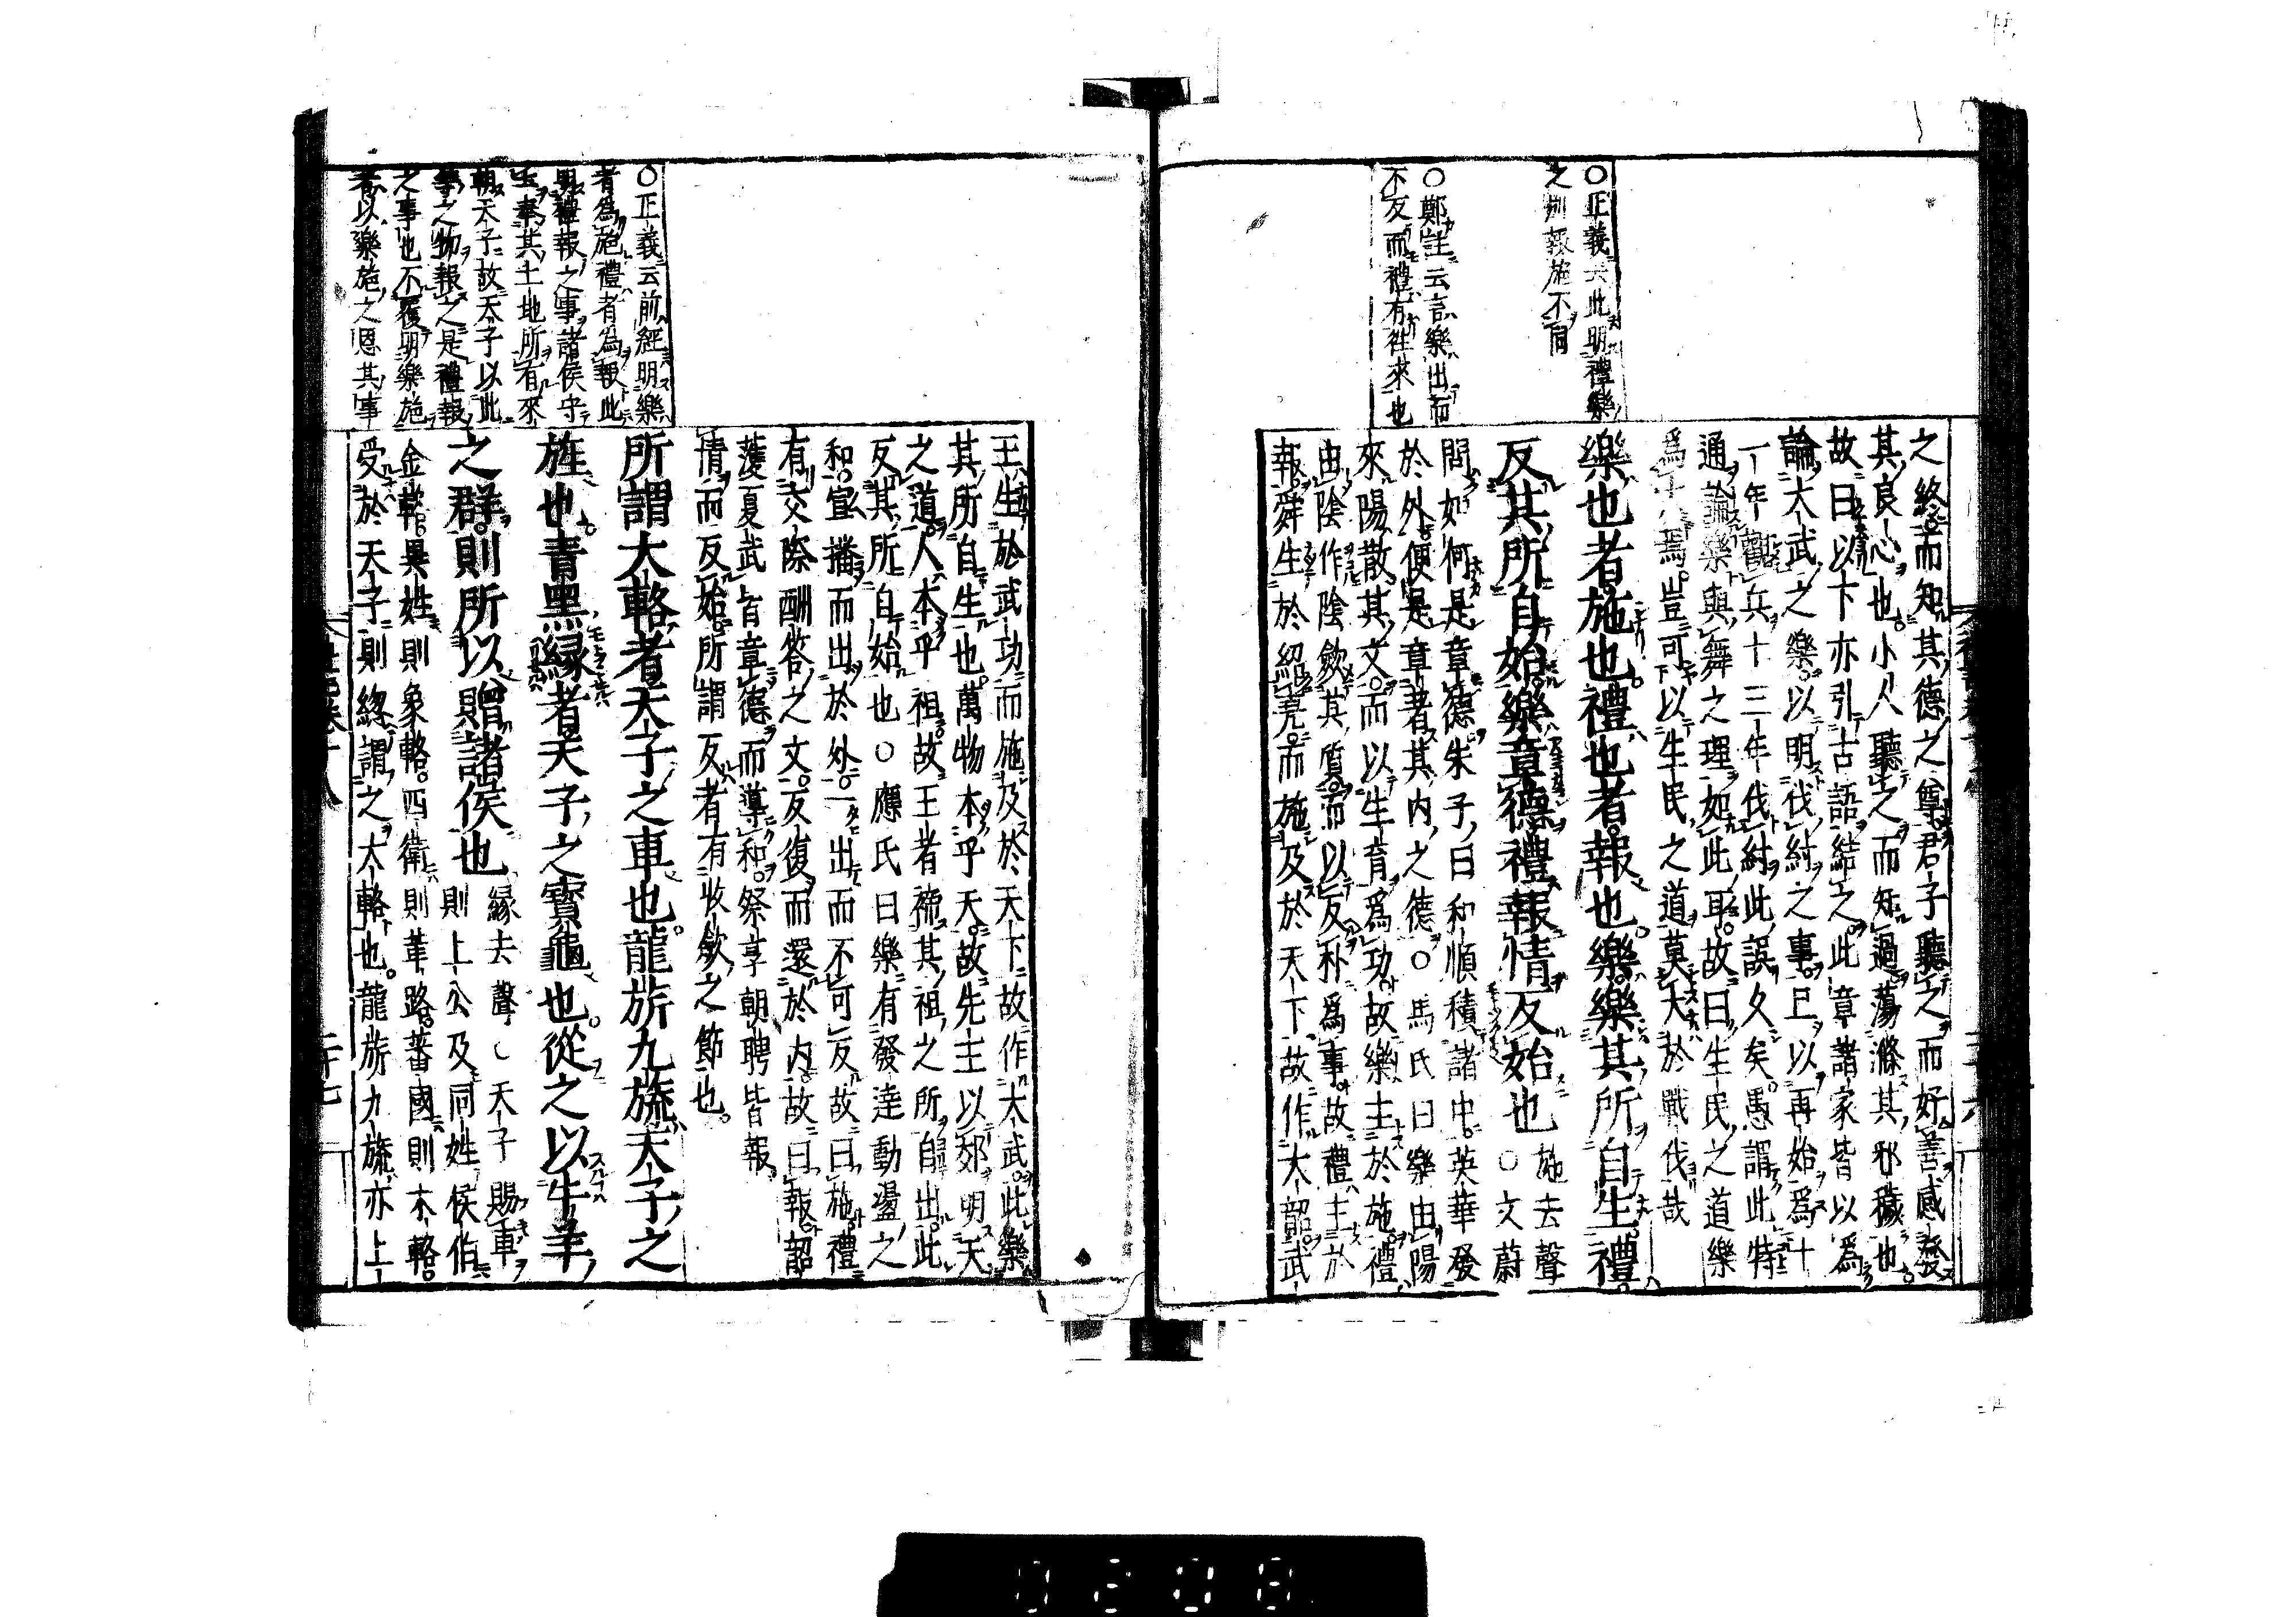 〇正義云此明禮樂
之別報施不同
〇鄭註云言樂出而
不反而禮有往來也
之終而知其德之尊君子聽之而好善感發
其良心也小人聽之而知過蕩滌其邪穢也
故曰以下亦引古語結之此章諸家皆以爲
論大武之樂以明伐紂之事且以再始爲十
一年觀兵十三年伐紂此誤久矣愚謂此特
通論樂與舞之理如此耳故曰生民之道樂
爲大焉豈可以生民之道莫大於戰伐哉
樂也者施也禮也者報也樂樂其所自生禮
反其所自始樂章德禮報情反始也 施去聲〇文蔚
問如何是章德朱子曰和順積諸中英華發
於外便是章著其內之德〇馬氏曰樂由陽
來陽散其文而以生育爲功故樂主於施禮
由陰作陰歛其質而以反朴爲事故禮主於
報舜生於紹堯而施及於天下故作大韶武
〇正義云前經明樂
者為施禮者為報此
明禮報之事諸侯守
土奉其土地所有來
朝天子故天子以此
等之物報之是禮報
之事也不覆明樂施
者以樂施之恩其事
王生於武功而施及於天下故作大武此樂
其所自生也萬物本乎天故先王以郊明天
之道人本乎祖故王者禘其祖之所自出此
反其所自始也〇應氏曰樂有發達動盪之
和宣播而出於外一出而不可反故曰施禮
有交際酬答之文反復而還於內故曰報韶
濩夏武皆章德而導和祭享朝聘皆報
情而反始所謂反者有收歛之節也
所謂大輅者天子之車也龍旂九旒天子之
旌也青黑緣者天子之寶龜也從之以牛羊
之群則所以贈諸侯也 緣去聲〇天子賜車則上公及同姓侯伯
金輅異姓則象輅四衛則革路蕃國則木輅
受於天子則緫謂之大輅也龍旂九旒亦上
二十七
0208